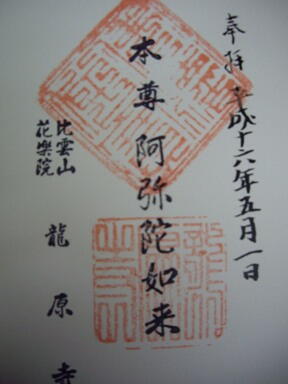 奉拝 平成十六年五月一日
本尊 阿弥陀如来
比雲山
花楽院
龍原寺